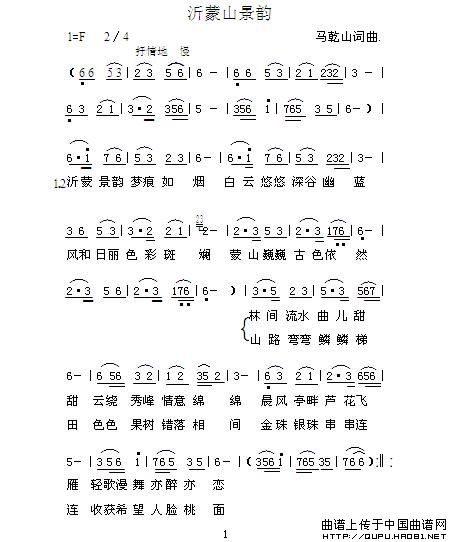 沂蒙山景韵
1=F 2／4 马乾山词曲.
抒情地 慢
（6 6 5 3 | 2 3 5 6 | 6 − | 6 6 5 3 | 2 1 232 | 3 − |
6 3 2 1 | 3·2 356 | 5 − | 356 i | 765 3 5 | 6 − ）|
6·i 7 6 | 5 3 5 6 | 6 − | 6·i 7 6 | 5 3 232 | 3 − |
1.2.沂蒙 景韵 梦痕 如 烟 白 云 悠悠 深谷 幽 蓝
3 6 5 3 | 2·3 2 1 | 2 − | 2·3 5 3 | 2·3 176 | 6 − |
风和 日丽 色 彩 斑 斓 蒙 山 巍巍 古 色依 然
2·3 2·3 | 2·3 176 | 6 − ）| 3·5 2 3 | 5·3 567 |
林 间 流水 曲 儿 甜
山 路 弯弯 鳞 鳞 梯
6 − | 6 56 3 2 | 1 2 35 2 | 3 − | 6 3 2 1 | 3·2 656 |
甜 云绕 秀峰 情意 绵 绵 晨风 亭畔 芦 花飞
田 色色 果树 错落 相 间 金珠 银珠 串 串连
5 − | 3 5 6 i | 7 6 5 | 6 − （356 i | 765 35 | 766 ）:||
雁 轻歌漫 舞 亦醉 亦 恋
连 收获希 望 人脸 桃 面
1
曲谱上传于中国曲谱网
HTTP://QUPU.HAO81.NET